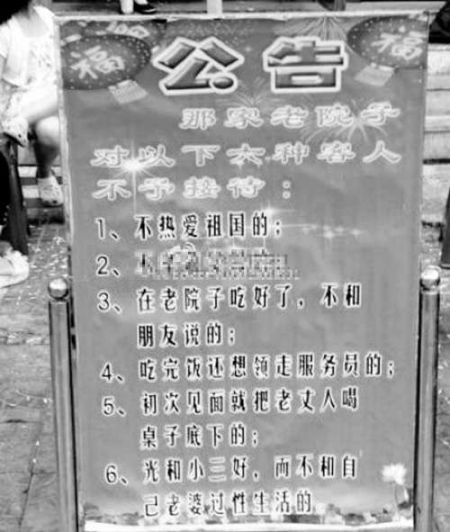 福
福
公告
那家老院子
对以下六种客人
不予接待:
1、不热爱祖国的;
2、不
3、在老院子吃好了，不和
朋友说的;
4、吃完饭还想领走服务员的;
5、初次见面就把老丈人喝
桌子底下的;
6、光和小三好，而不和自
己老婆过性生活的。